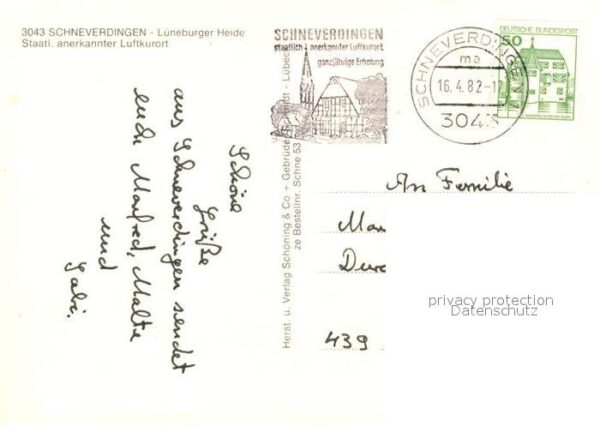 3043 SCHNEVERDINGEN - Lüneburger Heide
Staatl. anerkannter Luftkurort
SCHNEVERDINGEN
staatlich anerkannter Luftkurort
ganzjährige Erholung
SCHNEVERDINGEN
ma
16.4.82-17
3043
DEUTSCHE BUNDESPOST
50
Schöne
Grüße
aus Schneverdingen sendet
euch Manfred, Malte
und
Gabi.
Herst. u. Verlag Schöning & Co + Gebrüder Schmidt - Lübeck
ze Bestellnr. Schne 53
An Familie
439
privacy protection
Datenschutz